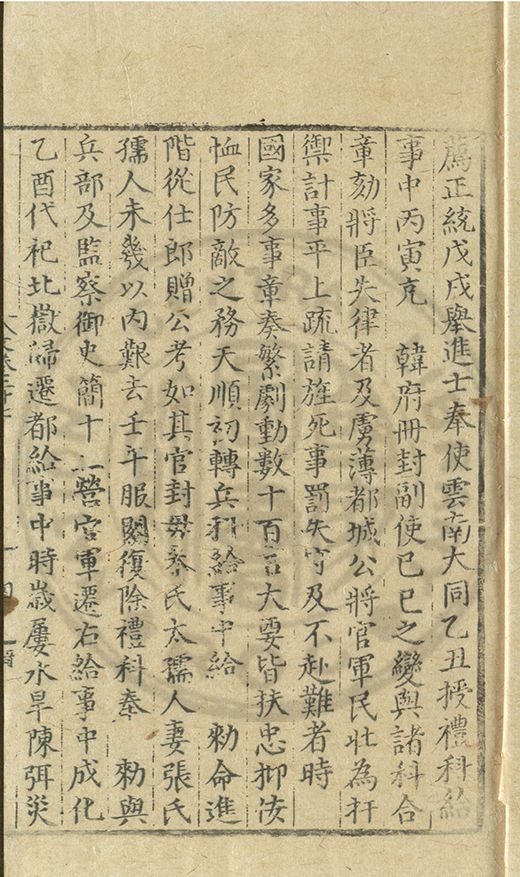 薦正統戊戌舉進士奉使雲南大同乙丑授禮科給
事中丙寅充　韓府冊封副使己巳之變與諸科合
章劾將臣失律者及虜薄都城公將官軍民壯為扞
禦計事平上疏請旌死事罰失守及不赴難者時
國家多事章奏繁劇動數十百言大要皆扶忠抑
恤民防敵之務天順初轉兵科給事中給　勑命進
階從仕郎贈公考如其官封母蔡氏太孺人妻張氏
孺人未幾以內艱去壬午服闋復除禮科奉　勑與
兵部及監察御史簡十二營官軍遷右給事中成化
乙酉代祀北嶽歸遷都給事中時歲屢水旱陳弭災